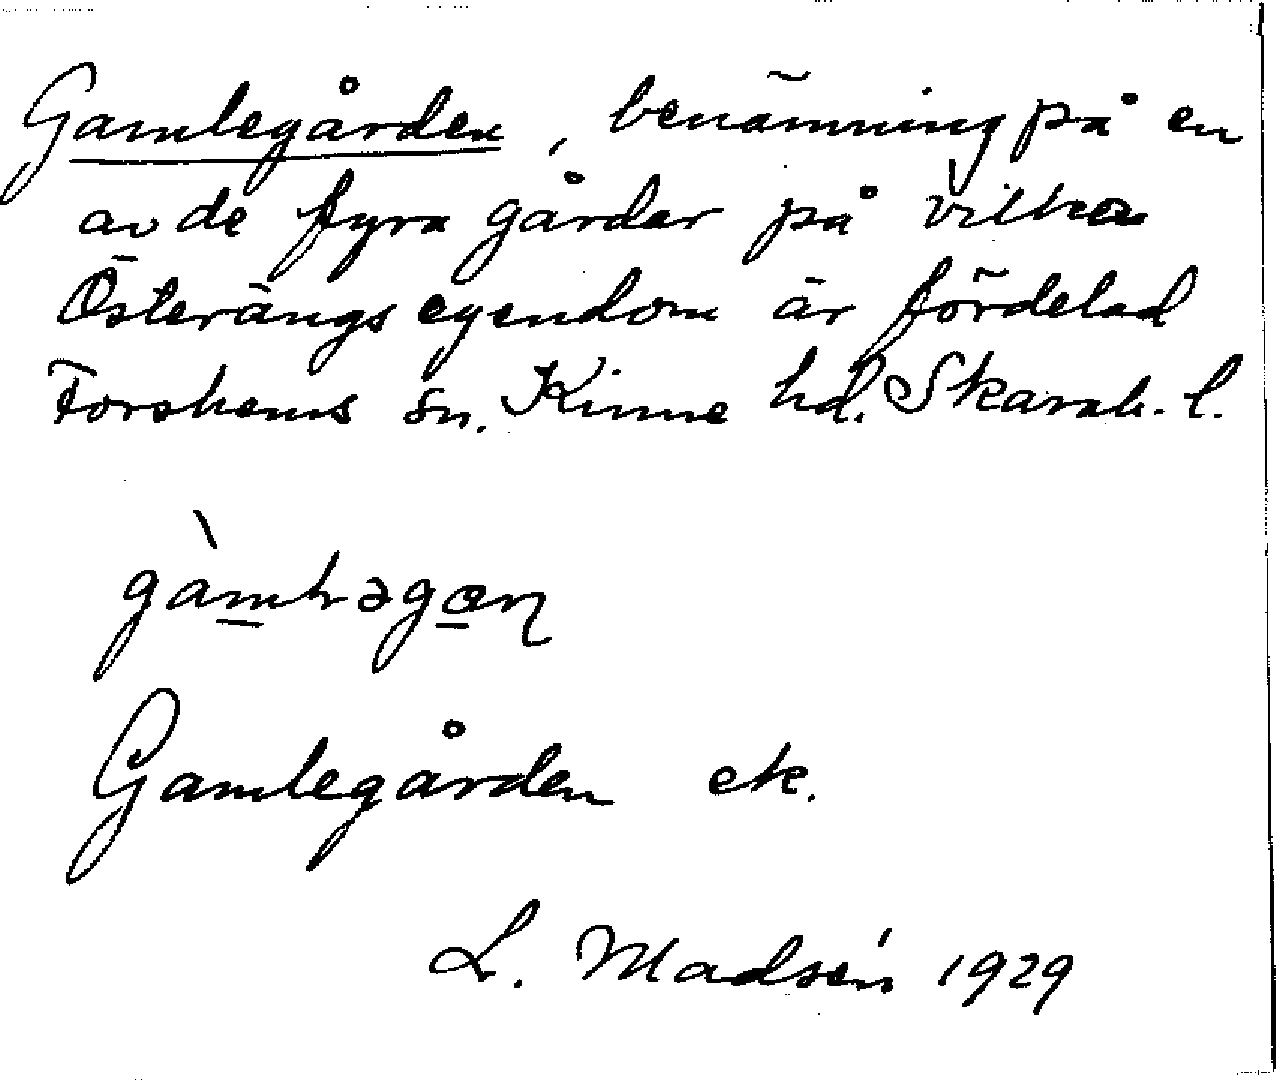 Gamlegården, benämning på en
av de fyra gårdar på vilka
Österängs egendom är fördelad
Forshems sn. Kinne hd. Skarab. l.
Gamlegården ek.
L. Madsén 1929